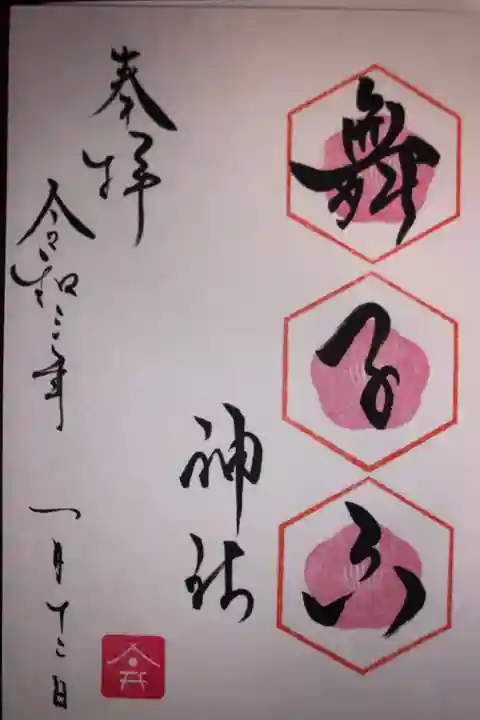 舞子六
神社
奉拝
令和三年 一月十二日